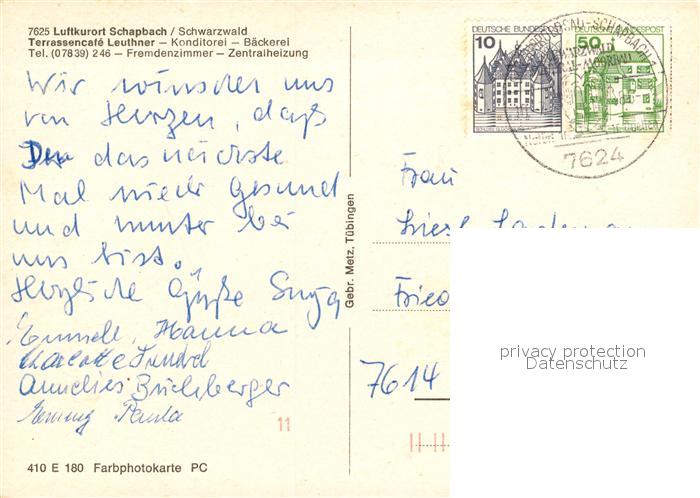 7625 Luftkurort Schapbach / Schwarzwald
Terrassencafé Leuthner — Konditorei — Bäckerei
Tel. (07839) 246 — Fremdenzimmer — Zentralheizung
Wir wünschen uns
von Herzen, daß
Du das nächste
Mal wieder gesund
und munter bei
uns bist.
Herzliche Grüße
Hanna
Charlotte
Annelies Buchberger
Paula
11
410 E 180 Farbphotokarte PC
Gebr. Metz, Tübingen
DEUTSCHE BUNDESPOST
10
50
SCHAPBACH 1
7624
Frau
Liesl
Fried
7614
privacy protection
Datenschutz